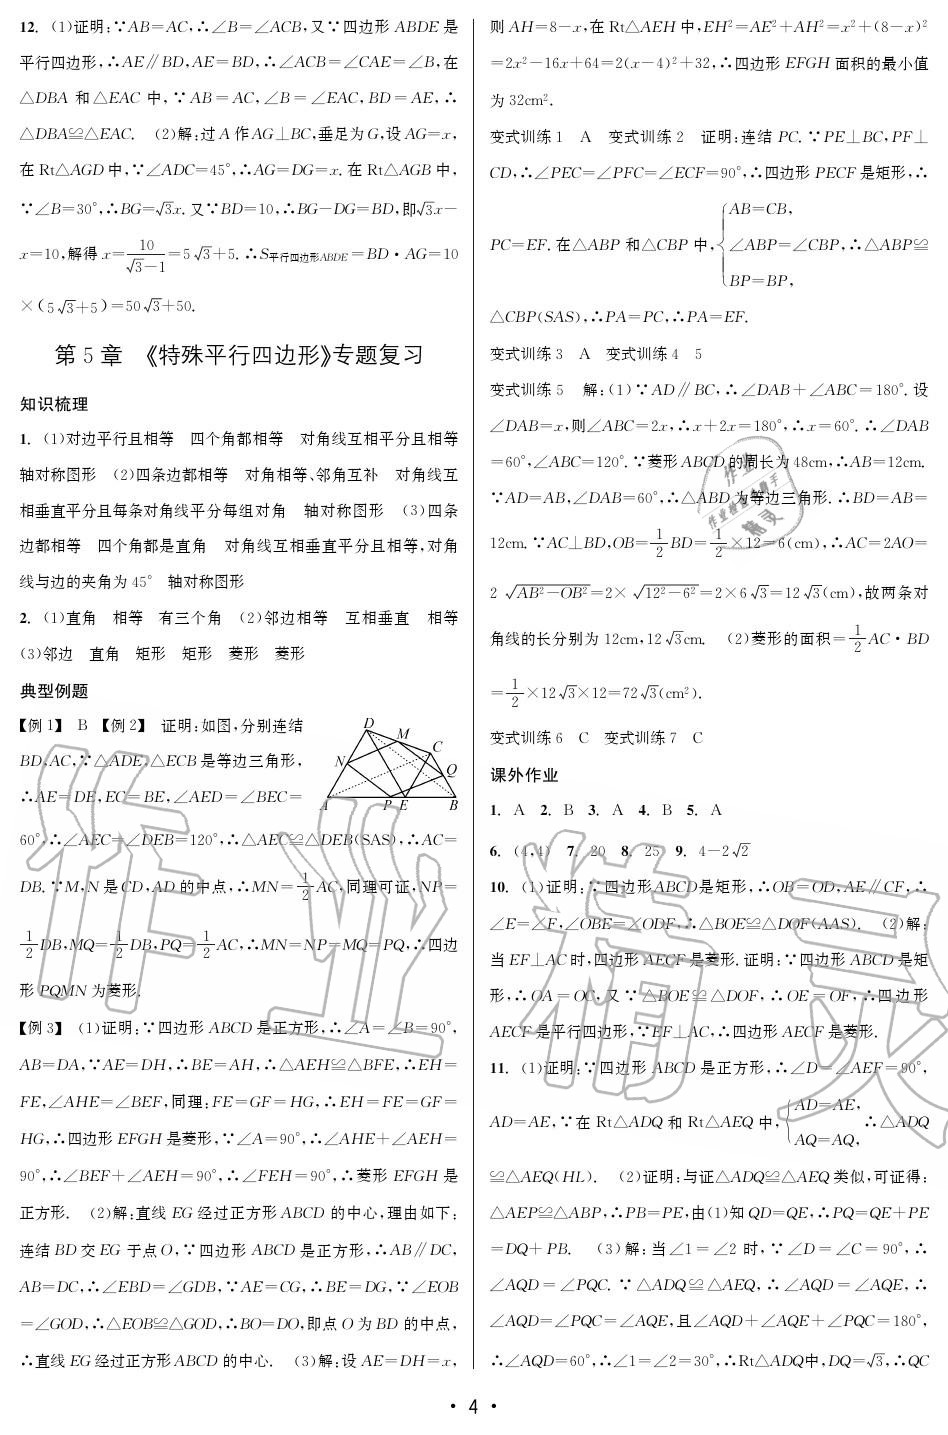 12. (1)证明:∵AB=AC,∴∠B=∠ACB,又∵四边形 ABDE 是
平行四边形,∴AE∥BD,AE=BD,∴∠ACB=∠CAE=∠B,在
△DBA 和△EAC 中,∵AB=AC,∠B=∠EAC,BD=AE,∴
△DBA≌△EAC. (2)解:过 A 作 AG⊥BC,垂足为 G,设 AG=x,
在 Rt△AGD 中,∵∠ADC=45°,∴AG=DG=x.在 Rt△AGB 中,
∵∠B=30°,∴BG=√3x.又∵BD=10,∴BG-DG=BD,即√3x-
x=10,解得 x=10/(√3-1)=5√3+5.∴S平行四边形ABDE=BD·AG=10
×(5√3+5)=50√3+50.
第 5 章 《特殊平行四边形》专题复习
知识梳理
1. (1)对边平行且相等 四个角都相等 对角线互相平分且相等
轴对称图形 (2)四条边都相等 对角相等、邻角互补 对角线互
相垂直平分且每条对角线平分每组对角 轴对称图形 (3)四条
边都相等 四个角都是直角 对角线互相垂直平分且相等,对角
线与边的夹角为 45° 轴对称图形
2. (1)直角 相等 有三个角 (2)邻边相等 互相垂直 相等
(3)邻边 直角 矩形 矩形 菱形 菱形
典型例题
【例 1】 B 【例 2】 证明:如图,分别连结
BD,AC,∵△ADE,△ECB 是等边三角形,
∴AE=DE,EC=BE,∠AED=∠BEC=
D M C N Q A P E B
60°,∴∠AEC=∠DEB=120°,∴△AEC≌△DEB(SAS),∴AC=
DB.∵M,N 是 CD,AD 的中点,∴MN=1/2AC,同理可证,NP=
1/2DB,MQ=1/2DB,PQ=1/2AC,∴MN=NP=MQ=PQ,∴四边
形 PQMN 为菱形.
【例 3】 (1)证明:∵四边形 ABCD 是正方形,∴∠A=∠B=90°,
AB=DA,∵AE=DH,∴BE=AH,∴△AEH≌△BFE,∴EH=
FE,∠AHE=∠BEF,同理:FE=GF=HG,∴EH=FE=GF=
HG,∴四边形 EFGH 是菱形,∵∠A=90°,∴∠AHE+∠AEH=
90°,∴∠BEF+∠AEH=90°,∴∠FEH=90°,∴菱形 EFGH 是
正方形. (2)解:直线 EG 经过正方形 ABCD 的中心,理由如下:
连结 BD 交 EG 于点 O,∵四边形 ABCD 是正方形,∴AB∥DC,
AB=DC,∴∠EBD=∠GDB,∵AE=CG,∴BE=DG,∵∠EOB
=∠GOD,∴△EOB≌△GOD,∴BO=DO,即点 O 为 BD 的中点,
∴直线 EG 经过正方形 ABCD 的中心. (3)解:设 AE=DH=x,
则 AH=8-x,在 Rt△AEH 中,EH²=AE²+AH²=x²+(8-x)²
=2x²-16x+64=2(x-4)²+32,∴四边形 EFGH 面积的最小值
为 32cm².
变式训练 1 A 变式训练 2 证明:连结 PC.∵PE⊥BC,PF⊥
CD,∴∠PEC=∠PFC=∠ECF=90°,∴四边形 PECF 是矩形,∴
PC=EF.在△ABP 和△CBP 中,{AB=CB, ∠ABP=∠CBP, BP=BP,∴△ABP≌
△CBP(SAS),∴PA=PC,∴PA=EF.
变式训练 3 A 变式训练 4 5
变式训练 5 解:(1)∵AD∥BC,∴∠DAB+∠ABC=180°.设
∠DAB=x,则∠ABC=2x,∴x+2x=180°,∴x=60°.∴∠DAB
=60°,∠ABC=120°.∵菱形 ABCD 的周长为 48cm,∴AB=12cm.
∵AD=AB,∠DAB=60°,∴△ABD 为等边三角形.∴BD=AB=
12cm.∵AC⊥BD,OB=1/2BD=1/2×12=6(cm),∴AC=2AO=
2√(AB²-OB²)=2×√(12²-6²)=2×6√3=12√3(cm),故两条对
角线的长分别为 12cm,12√3cm. (2)菱形的面积=1/2AC·BD
=1/2×12√3×12=72√3(cm²).
变式训练 6 C 变式训练 7 C
课外作业
1. A 2. B 3. A 4. B 5. A
6. (4,4) 7. 20 8. 25 9. 4-2√2
10. (1)证明:∵四边形ABCD是矩形,∴OB=OD,AE∥CF,∴
∠E=∠F,∠OBE=∠ODF,∴△BOE≌△DOF(AAS). (2)解:
当 EF⊥AC 时,四边形 AECF 是菱形.证明:∵四边形 ABCD 是矩
形,∴OA=OC,又∵△BOE≌△DOF,∴OE=OF,∴四边形
AECF 是平行四边形,∵EF⊥AC,∴四边形 AECF 是菱形.
11. (1)证明:∵四边形 ABCD 是正方形,∴∠D=∠AEF=90°,
AD=AE,∵在 Rt△ADQ 和 Rt△AEQ 中,{AD=AE, AQ=AQ,∴△ADQ
≌△AEQ(HL). (2)证明:与证△ADQ≌△AEQ 类似,可证得:
△AEP≌△ABP,∴PB=PE,由(1)知 QD=QE,∴PQ=QE+PE
=DQ+PB. (3)解:当∠1=∠2 时,∵∠D=∠C=90°,∴
∠AQD=∠PQC.∵△ADQ≌△AEQ,∴∠AQD=∠AQE,∴
∠AQD=∠PQC=∠AQE,且∠AQD+∠AQE+∠PQC=180°,
∴∠AQD=60°,∴∠1=∠2=30°,∴Rt△ADQ中,DQ=√3,∴QC
· 4 ·
作业精灵